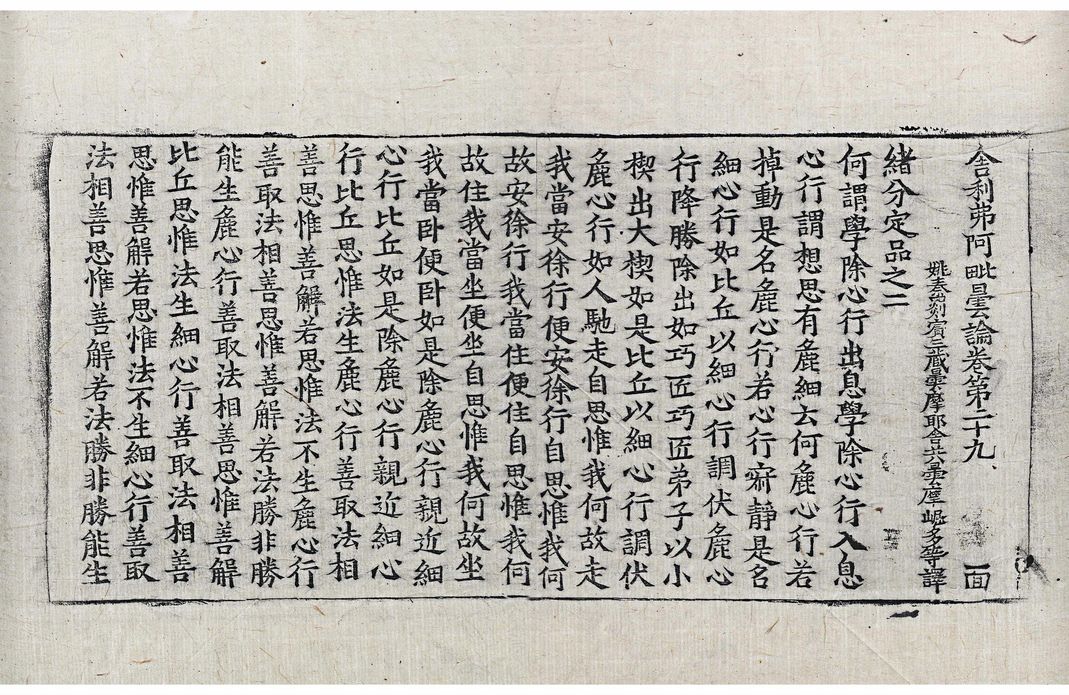 舍利弗阿毗曇論卷第二十九 面
姚秦罽賓三藏曇摩耶舍共曇摩崛多等譯
緒分定品之二
何謂學除心行出息學除心行入息
心行謂想思有麁細云何麁心行若
掉動是名麁心行若心行寂靜是名
細心行如比丘以細心行調伏麁心
行降勝除出如巧匠巧匠弟子以小
楔出大楔如是比丘以細心行調伏
麁心行如人馳走自思惟我何故走
我當安徐行便安徐行自思惟我何
故安徐行我當住便住自思惟我何
故住我當坐便坐自思惟我何故坐
我當卧便卧如是除麁心行親近細
心行比丘如是除麁心行親近細心
行比丘思惟法生麁心行善取法相
善思惟善解若思惟法不生麁心行
善取法相善思惟善解若法勝非勝
能生麁心行善取法相善思惟善解
比丘思惟法生細心行善取法相善
思惟善解若思惟法不生細心行善取
法相善思惟善解若法勝非勝能生